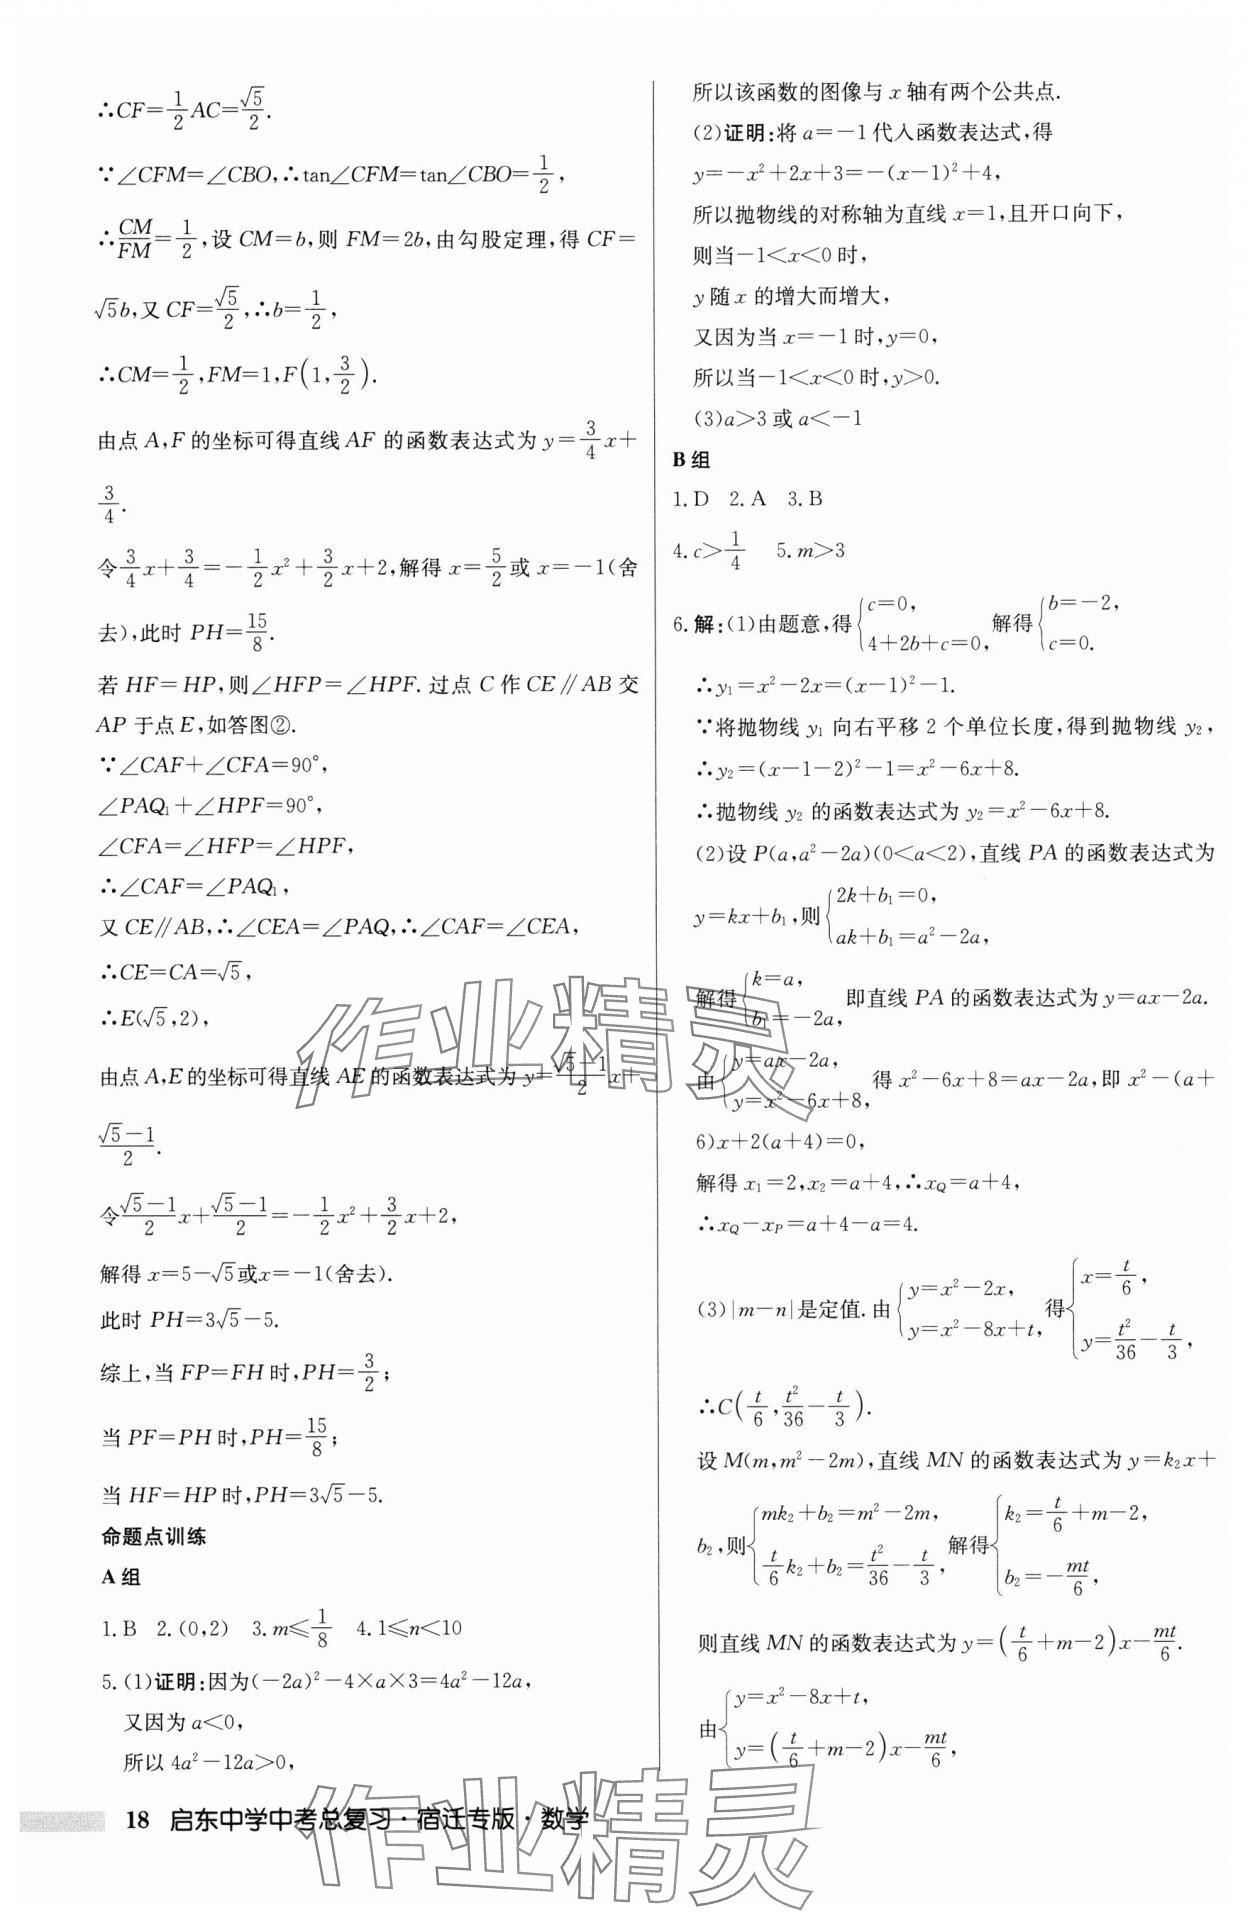 ∴CF=1/2 AC=√5/2.
∵∠CFM=∠CBO,∴tan∠CFM=tan∠CBO=1/2,
∴CM/FM=1/2,设 CM=b,则 FM=2b,由勾股定理,得 CF=
√5b,又 CF=√5/2,∴b=1/2,
∴CM=1/2,FM=1,F(1,3/2).
由点 A,F 的坐标可得直线 AF 的函数表达式为 y=3/4 x+
3/4.
令3/4 x+3/4=-1/2 x²+3/2 x+2,解得 x=5/2或 x=-1(舍
去),此时 PH=15/8.
若 HF=HP,则∠HFP=∠HPF.过点 C 作 CE∥AB 交
AP 于点 E,如答图②.
∵∠CAF+∠CFA=90°,
∠PAQ₁+∠HPF=90°,
∠CFA=∠HFP=∠HPF,
∴∠CAF=∠PAQ₁,
又 CE∥AB,∴∠CEA=∠PAQ,∴∠CAF=∠CEA,
∴CE=CA=√5,
∴E(√5,2),
由点 A,E 的坐标可得直线 AE 的函数表达式为 y=(√5-1)/2 x+
(√5-1)/2.
令(√5-1)/2 x+(√5-1)/2=-1/2 x²+3/2 x+2,
解得 x=5-√5或x=-1(舍去).
此时 PH=3√5-5.
综上,当 FP=FH 时,PH=3/2;
当 PF=PH 时,PH=15/8;
当 HF=HP 时,PH=3√5-5.
命题点训练
A 组
1.B 2.(0,2) 3.m≤1/8 4.1≤n<10
5.(1)证明:因为(-2a)²-4×a×3=4a²-12a,
又因为 a<0,
所以 4a²-12a>0,
所以该函数的图像与 x 轴有两个公共点.
(2)证明:将 a=-1代入函数表达式,得
y=-x²+2x+3=-(x-1)²+4,
所以抛物线的对称轴为直线 x=1,且开口向下,
则当-1<x<0 时,
y 随 x 的增大而增大,
又因为当 x=-1 时,y=0,
所以当-1<x<0 时,y>0.
(3)a>3 或 a<-1
B 组
1.D 2.A 3.B
4.c>1/4 5.m>3
6.解:(1)由题意,得{c=0, 4+2b+c=0, 解得{b=-2, c=0.
∴y₁=x²-2x=(x-1)²-1.
∵将抛物线 y₁ 向右平移 2 个单位长度,得到抛物线 y₂,
∴y₂=(x-1-2)²-1=x²-6x+8.
∴抛物线 y₂ 的函数表达式为 y₂=x²-6x+8.
(2)设 P(a,a²-2a)(0<a<2),直线 PA 的函数表达式为
y=kx+b₁,则{2k+b₁=0, ak+b₁=a²-2a,
解得{k=a, b₁=-2a, 即直线 PA 的函数表达式为 y=ax-2a.
由{y=ax-2a, y=x²-6x+8, 得 x²-6x+8=ax-2a,即 x²-(a+
6)x+2(a+4)=0,
解得 x₁=2,x₂=a+4,∴x_Q=a+4,
∴x_Q-x_P=a+4-a=4.
(3)|m-n|是定值.由{y=x²-2x, y=x²-8x+t, 得{x=t/6, y=t²/36-t/3,
∴C(t/6,t²/36-t/3).
设 M(m,m²-2m),直线 MN 的函数表达式为 y=k₂x+
b₂,则{mk₂+b₂=m²-2m, t/6 k₂+b₂=t²/36-t/3, 解得{k₂=t/6+m-2, b₂=-mt/6,
则直线 MN 的函数表达式为 y=(t/6+m-2)x-mt/6.
由{y=x²-8x+t, y=(t/6+m-2)x-mt/6,
18 启东中学中考总复习·宿迁专版·数学
作业精灵
作业精灵